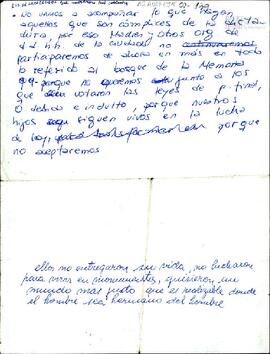 - no vamos a acompañar lo que hagan
aquellos que son cómplices de la dicta
dura, por eso Madres y otras org de
dd.hh de la ciudad no
participaremos de ahora en mas en todo
lo referido al bosque de la Memoria
porque no queremos junto a los
que votaron las leyes de p. final,
o debida e indulto, porque nuestros
hijos siguen vivos en la lucha
de hoy, porque
no aceptaremos
ellos no entregaron su vida, no lucharon
para vivir en monumentos, quisieron un
mundo mas justo que es realizable donde
el hombre sea hermano del hombre